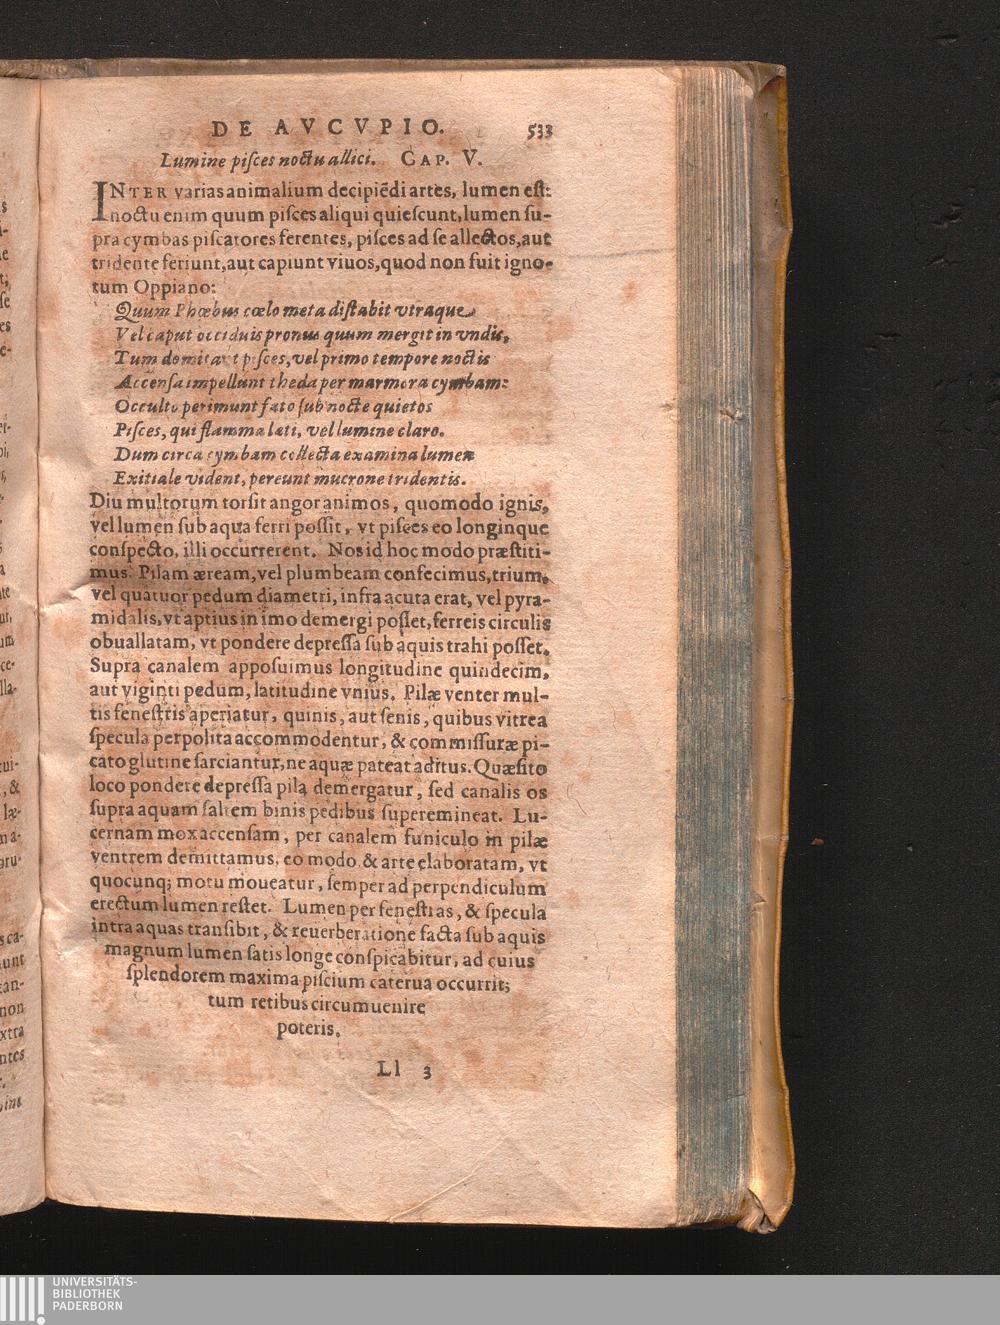 DE AVCVPIO. 533
Lumine piſces noctu allici. CAP. V.
INTER varias animalium decipiẽdi artes, lumen eſt:
noctu enim quum piſces aliqui quieſcunt, lumen ſu-
pra cymbas piſcatores ferentes, piſces ad ſe allectos, aut
tridente feriunt, aut capiunt viuos, quod non fuit igno-
tum Oppiano:
Quum Phœbus cœlo meta diſtabit vtraque
Vel caput occiduis pronus quum mergit in vndis,
Tum domitant piſces, vel primo tempore noctis
Accenſa impellunt theda per marmora cymbam:
Occulto perimunt fato ſub nocte quietos
Piſces, qui flamma læti, vel lumine claro.
Dum circa cymbam collecta examina lumen
Exitiale vident, pereunt mucrone tridentis.
Diu multorum torſit angor animos, quomodo ignis,
vel lumen ſub aqua ferri poſſit, vt piſces eo longinque
conſpecto, illi occurrerent. Nos id hoc modo præſtiti-
mus. Pilam æream, vel plumbeam confecimus, trium,
vel quatuor pedum diametri, infra acuta erat, vel pyra-
midalis, vt aptius in imo demergi poſſet, ferreis circulis
obuallatam, vt pondere depreſſa ſub aquis trahi poſſet.
Supra canalem appoſuimus longitudine quindecim,
aut viginti pedum, latitudine vnius. Pilæ venter mul-
tis feneſtris aperiatur, quinis, aut ſenis, quibus vitrea
ſpecula perpolita accommodentur, & commiſſuræ pi-
cato glutine ſarciantur, ne aquæ pateat aditus. Quæſito
loco pondere depreſſa pila demergatur, ſed canalis os
ſupra aquam ſaltem binis pedibus ſuperemineat. Lu-
cernam mox accenſam, per canalem funiculo in pilæ
ventrem demittamus, eo modo & arte elaboratam, vt
quocunq; motu moueatur, ſemper ad perpendiculum
erectum lumen reſtet. Lumen per feneſtras, & ſpecula
intra aquas tranſibit, & reuerberatione facta ſub aquis
magnum lumen ſatis longe conſpicabitur, ad cuius
ſplendorem maxima piſcium caterua occurrit;
tum retibus circumuenire
poteris.
Ll 3
UNIVERSITÄTS-
BIBLIOTHEK
PADERBORN